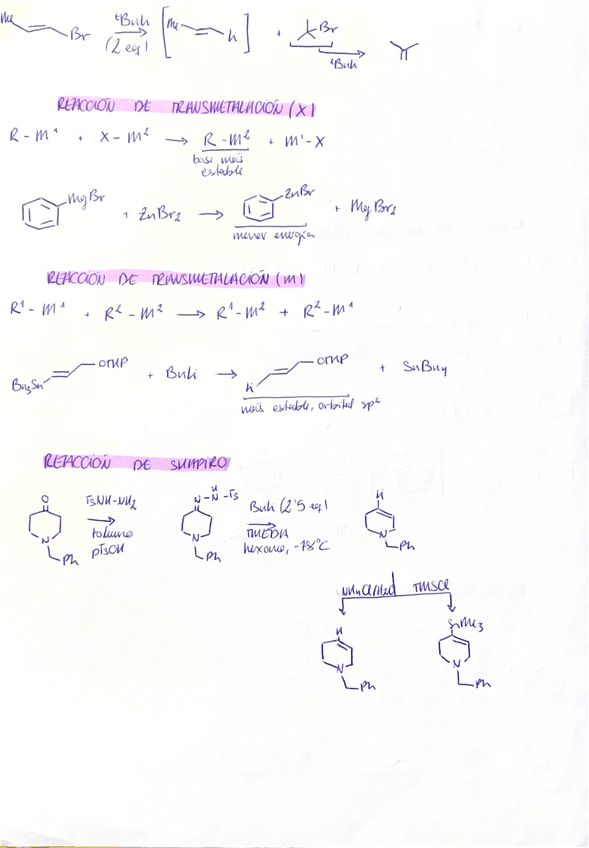 Me Br tBuLi (2 eq) [ Me Li ] + Br tBuLi
REACCIÓN DE TRANSMETALACIÓN (X)
R - M¹ + X - M² → R - M² + M¹-X
base más estable
MgBr + ZnBr₂ → ZnBr + MgBr₂
menor energía
REACCIÓN DE TRANSMETALACIÓN (M)
R¹ - M¹ + R² - M² → R¹ - M² + R² - M¹
Bu₃Sn OTHP + BuLi → Li OTHP + SnBu₄
más estable, orbital sp²
REACCIÓN DE SHAPIRO
O N Ph TsNH-NH₂ tolueno pTsOH
N-N-Ts H N Ph BuLi (2'5 eq) TMEDA hexano, -78°C
Li N Ph
NH₄Cl/H₂O TMSCl
H N Ph
SiMe₃ N Ph